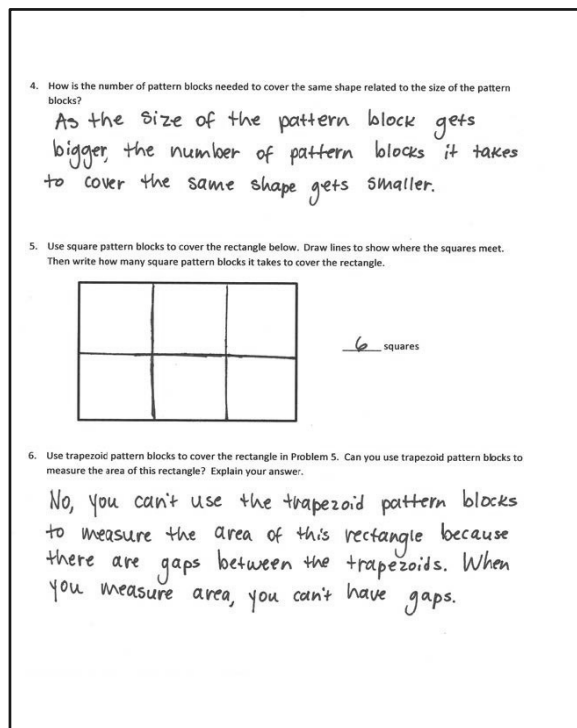 4. How is the number of pattern blocks needed to cover the same shape related to the size of the pattern
blocks?
As the size of the pattern block gets
bigger, the number of pattern blocks it takes
to cover the same shape gets smaller.
5. Use square pattern blocks to cover the rectangle below. Draw lines to show where the squares meet.
Then write how many square pattern blocks it takes to cover the rectangle.
6 squares
6. Use trapezoid pattern blocks to cover the rectangle in Problem 5. Can you use trapezoid pattern blocks to
measure the area of this rectangle? Explain your answer.
No, you can't use the trapezoid pattern blocks
to measure the area of this rectangle because
there are gaps between the trapezoids. When
you measure area, you can't have gaps.